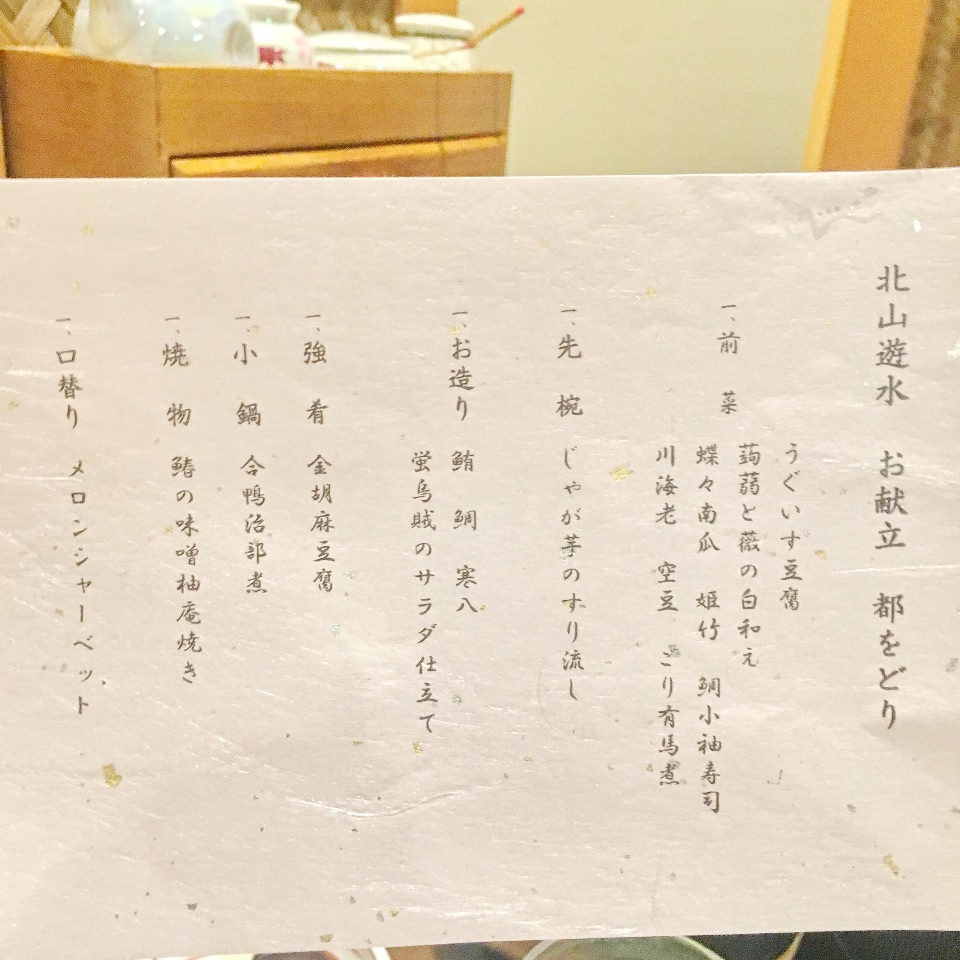 北山遊水 お献立 都をどり
一、前 菜
うぐいす豆腐
蒟蒻と薇の白和え
蝶々南瓜 姫竹 鯛小袖寿司
川海老 空豆 ごり有馬煮
一、先 椀 じゃが芋のすり流し
一、お造り 鮪 鯛 寒八
蛍烏賊のサラダ仕立て
一、強 肴 金胡麻豆腐
一、小 鍋 合鴨治部煮
一、焼 物 鰆の味噌柚庵焼き
一、口替り メロンシャーベット